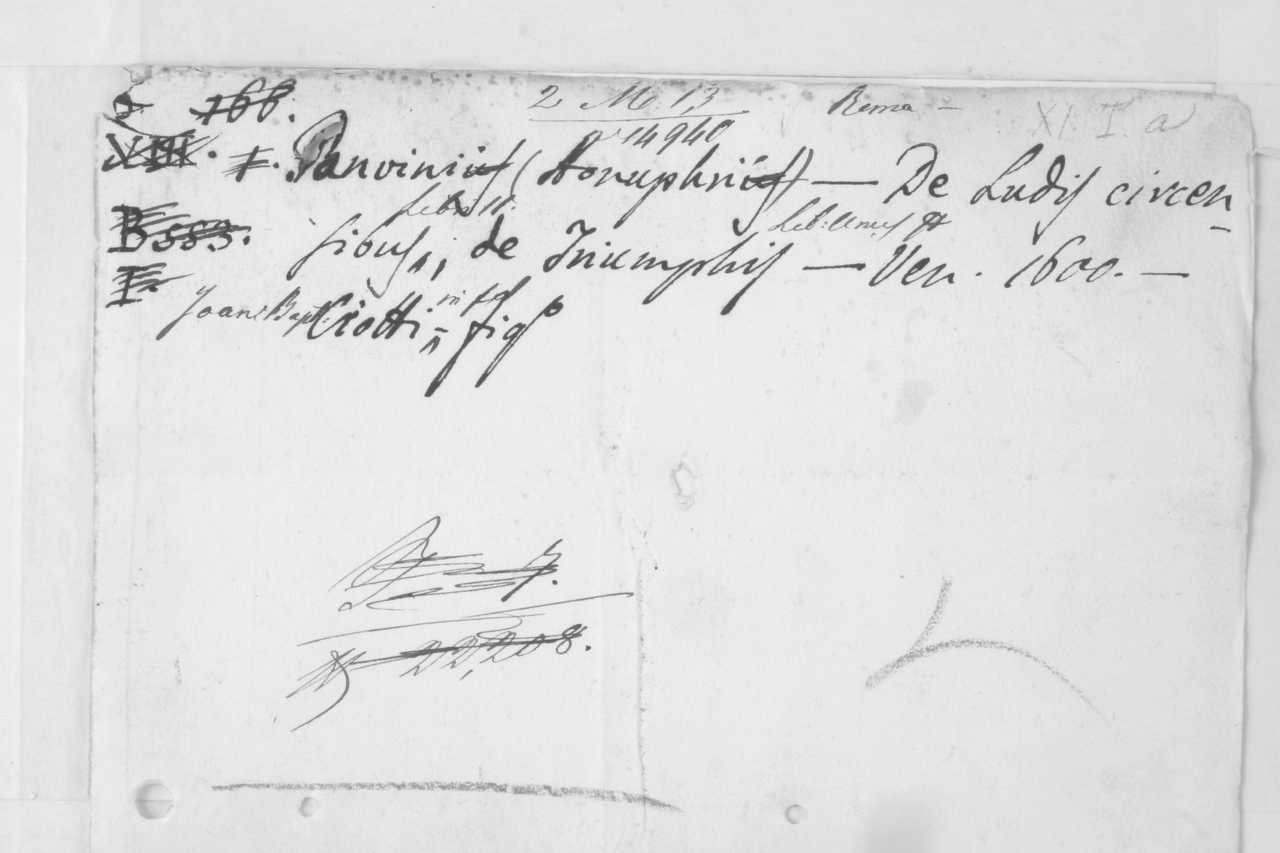 166. 2 M. 13 Roma - XI. I. a
14940
XIII. I. Panvinius (Honuphrius) — De Ludis circen-
Lib: II. Lib: Unus
B 553. sibus, de Triumphis — Ven. 1600. —
I.
Joan: Bapt: Ciotti = in fol figº
22,208.